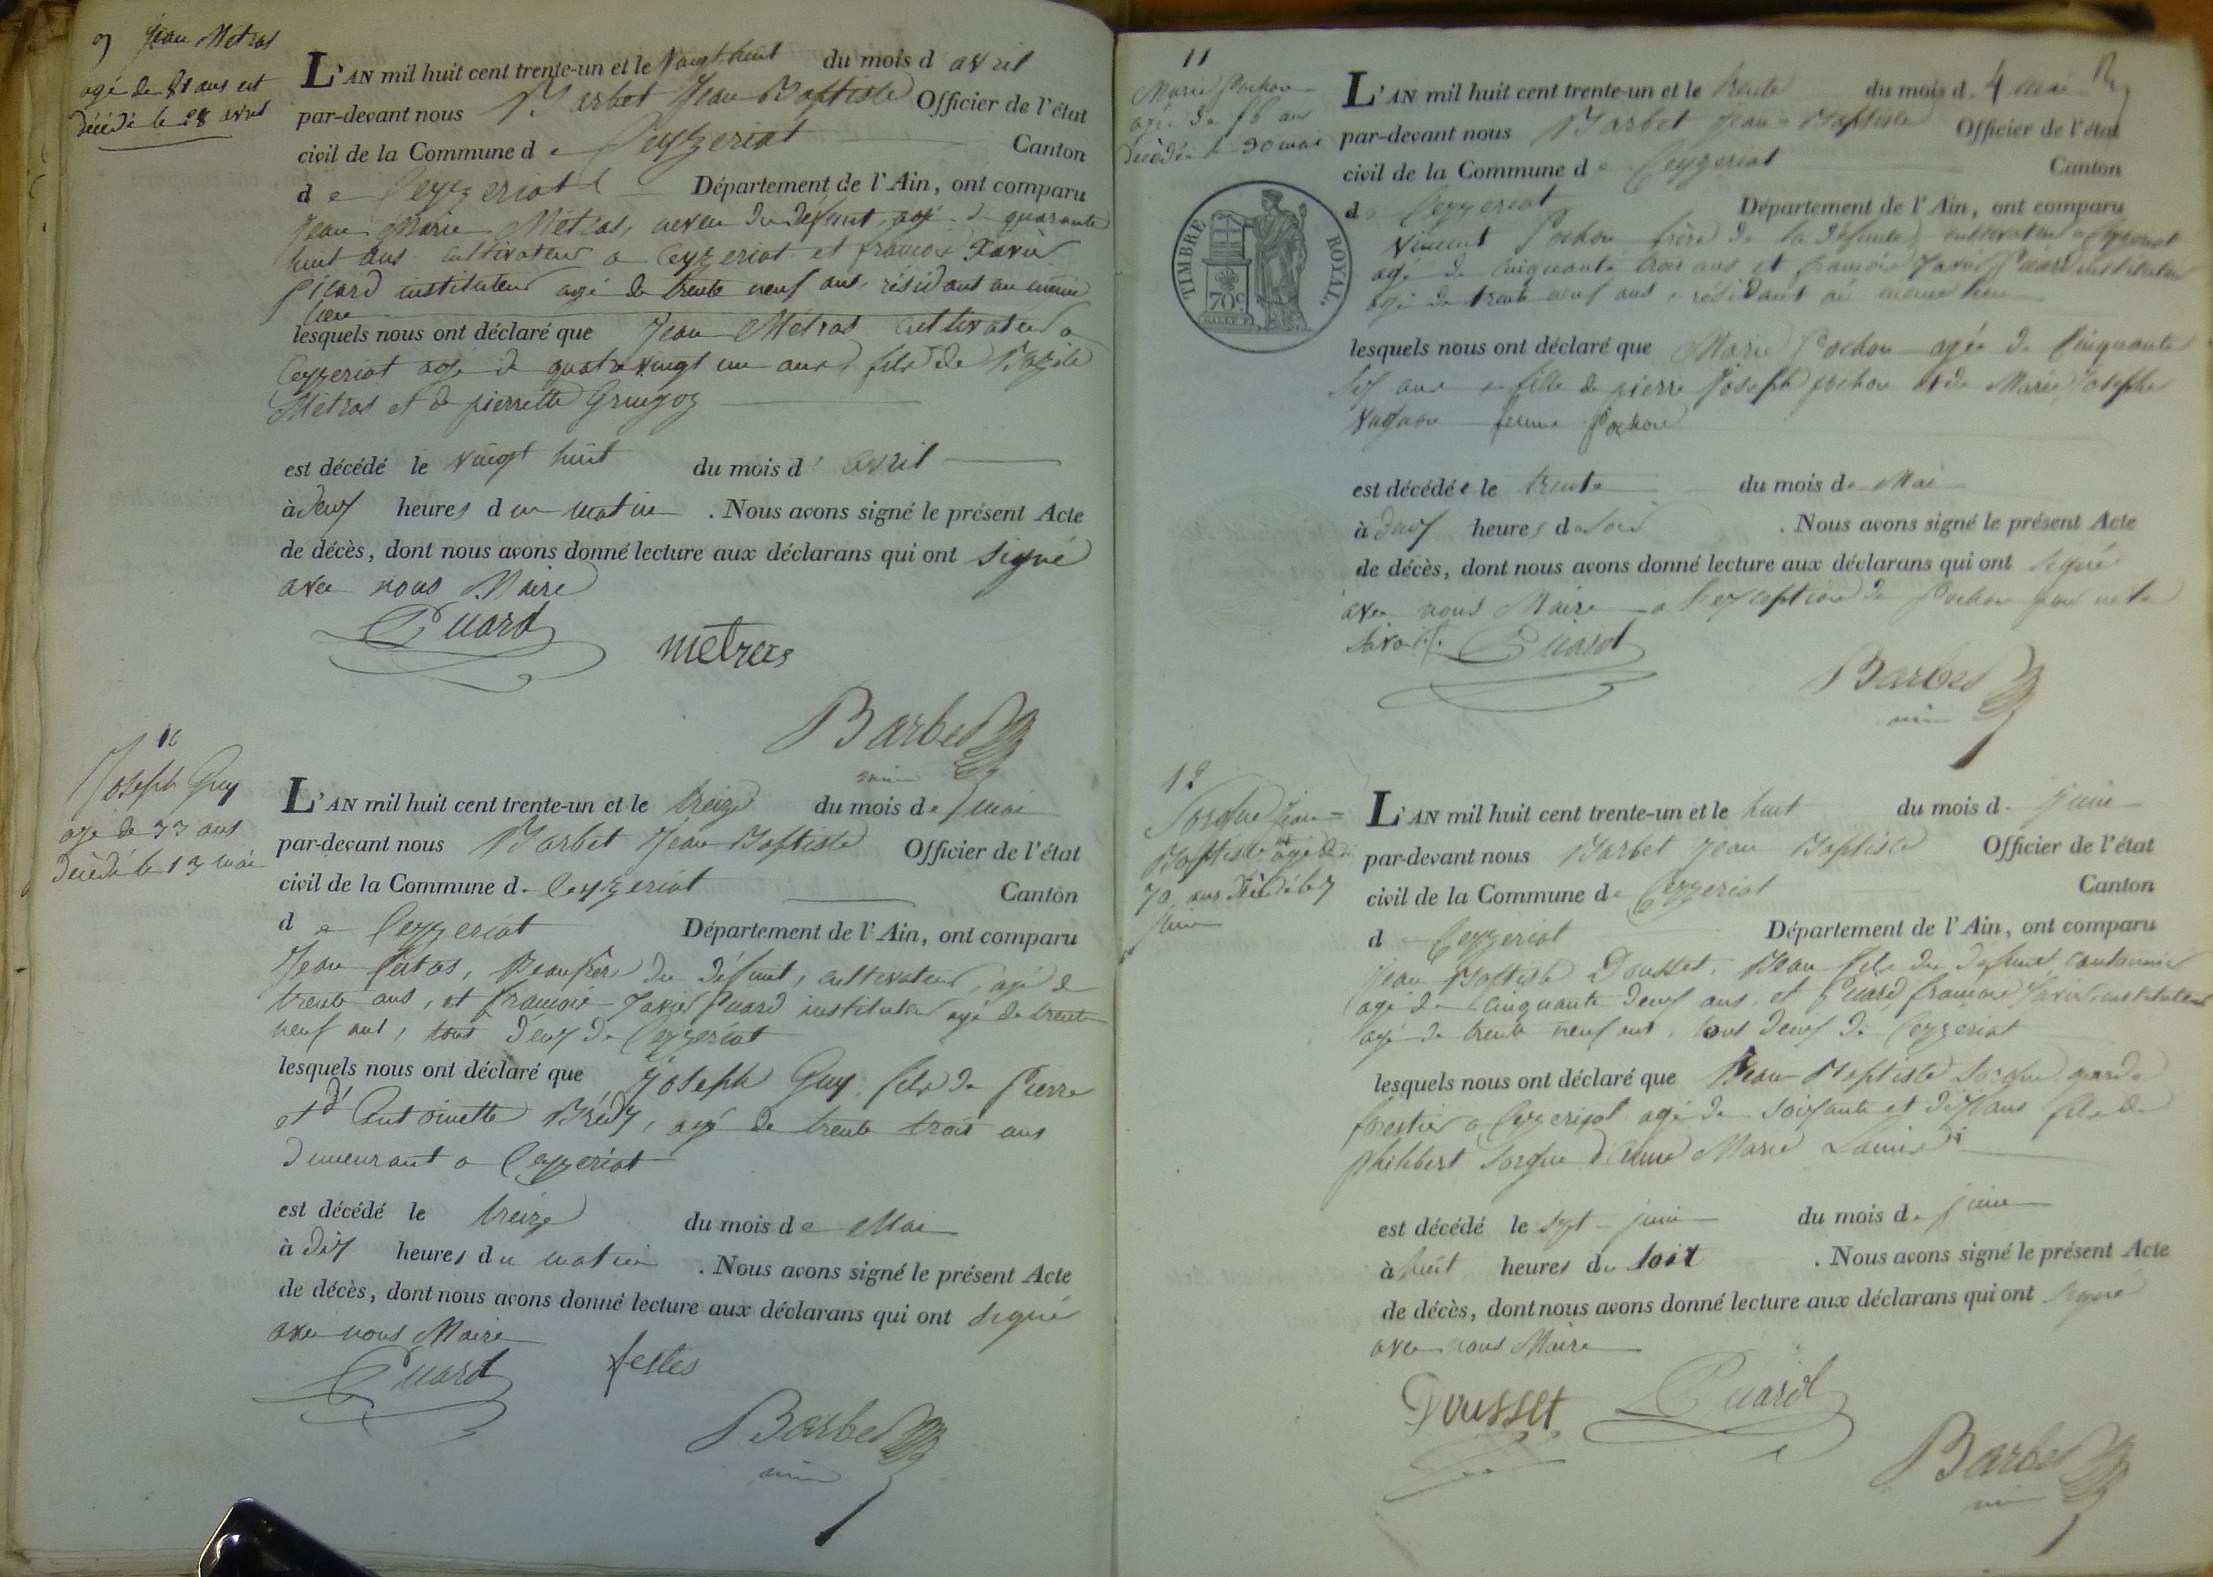 9 Jean Métras
agé de 81 ans est
décédé le 28 avril
L'AN mil huit cent trente-un et le vingt huit du mois d avril
par-devant nous Barbet Jean Baptiste Officier de l'état
civil de la Commune de Ceyzeriat Canton
de Ceyzeriat Département de l'Ain, ont comparu
Jean Marie Métras, neveu du défunt, agé de quarante
huit ans cultivateur a Ceyzeriat et françois Xavier
Picard instituteur agé de trente neuf ans résidant au même
lieu
lesquels nous ont déclaré que Jean Métras cultivateur a
Ceyzeriat agé de quatre vingt un ans fils de Bazile
Métras et de pierrette
est décédé le vingt huit du mois d' avril
à deux heures du matin . Nous avons signé le présent Acte
de décès, dont nous avons donné lecture aux déclarans qui ont signé
avec nous Maire
Picard metras
Barbet
maire
10
Joseph Guy
age de 33 ans
décédé le 13 mai
L'AN mil huit cent trente-un et le treize du mois de mai
par-devant nous Barbet Jean Baptiste Officier de l'état
civil de la Commune de Ceyzeriat Canton
de Ceyzeriat Département de l'Ain, ont comparu
Jean festas, Beaufrère du défunt, cultivateur, agé de
trente ans, et françois Xavier Picard instituteur agé de trente
neuf ans, tous deux de Ceyzeriat
lesquels nous ont déclaré que Joseph Guy fils de Pierre
et d'Antoinette agé de trente trois ans
demeurant a Ceyzeriat
est décédé le treize du mois de Mai
à dix heures du matin . Nous avons signé le présent Acte
de décès, dont nous avons donné lecture aux déclarans qui ont signé
avec nous Maire
Picard festes
Barbet
maire
11
Marie Pochon
agée de 56 ans
décédée le 30 mai
L'AN mil huit cent trente-un et le trente du mois de mai
par-devant nous Barbet Jean Baptiste Officier de l'état
civil de la Commune de Ceyzeriat Canton
de Ceyzeriat Département de l'Ain, ont comparu
TIMBRE ROYAL.
70c
Vincent Pochon frère de la défunte, cultivateur a Ceyzeriat
agé de cinquante trois ans et françois Xavier Picard instituteur
agé de trente neuf ans, résidant au même lieu
lesquels nous ont déclaré que Marie Pochon agée de cinquante
six ans fille de pierre Joseph pochon et de Marie Josephe
femme Pochon
est décédée le trente du mois de Mai
à deux heures du soir . Nous avons signé le présent Acte
de décès, dont nous avons donné lecture aux déclarans qui ont signé
avec nous Maire a l'exception de Pochon pour ne le
savoir. Picard
Barbet
maire
12
Sorgue Jean =
Baptiste agé de
70 ans décédé le 7
juin
L'AN mil huit cent trente-un et le huit du mois de juin
par-devant nous Barbet Jean Baptiste Officier de l'état
civil de la Commune de Ceyzeriat Canton
de Ceyzeriat Département de l'Ain, ont comparu
Jean Baptiste Dousset, Beau fils du défunt cantonnier
agé de cinquante deux ans et Picard françois Xavier instituteur
agé de trente neuf ans, tous deux de Ceyzeriat
lesquels nous ont déclaré que Jean Baptiste Sorgue garde
forestier a Ceyzeriat agé de soixante et dix ans fils de
philibert Sorgue d'Anne Marie
est décédé le sept juin du mois de juin
à huit heures du soir . Nous avons signé le présent Acte
de décès, dont nous avons donné lecture aux déclarans qui ont signé
avec nous Maire
Dousset Picard
Barbet
maire